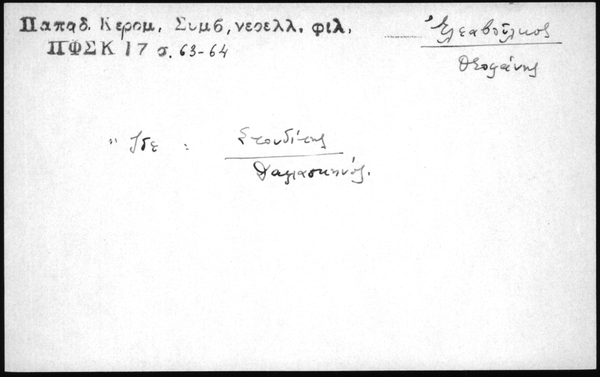 Παπαδ. Κεραμ. Συμβ, νεοελλ. φιλ.
ΠΦΣΚ 17 σ. 63-64
Ἐλεαβοῦλκος
Θεοφάνης
" Ἴδε :
Στουδίτης
Δαμασκηνός.